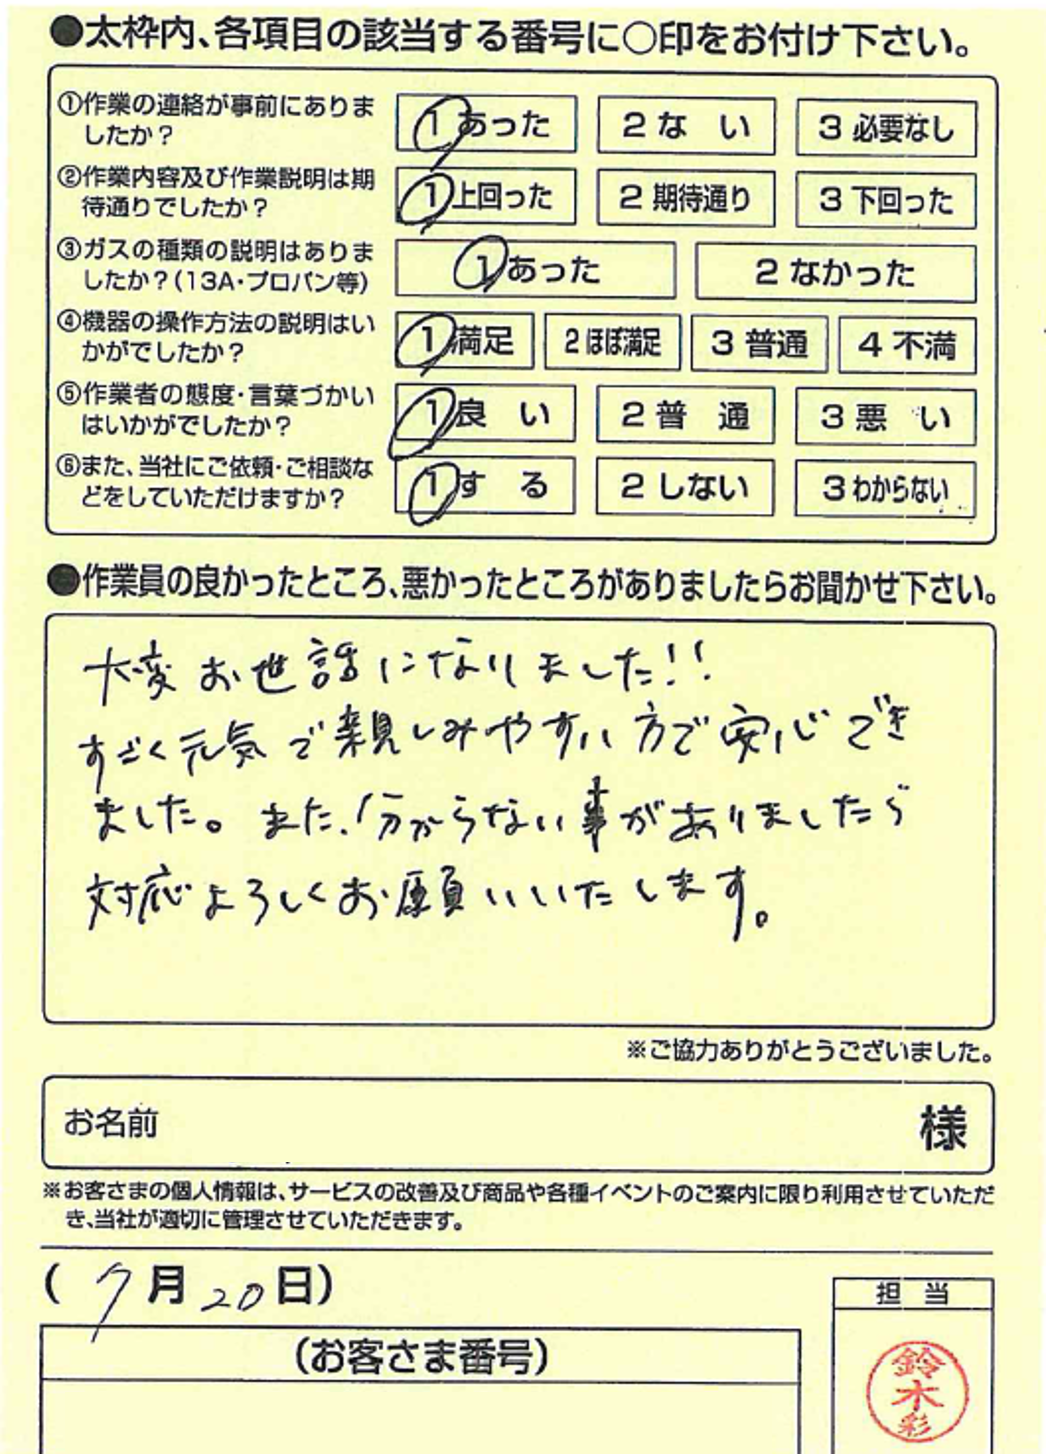 ●太枠内、各項目の該当する番号に○印をお付け下さい。
①作業の連絡が事前にありま
したか？
1 あった
2 な い
3 必要なし
②作業内容及び作業説明は期
待通りでしたか？
1 上回った
2 期待通り
3 下回った
③ガスの種類の説明はありま
したか？(13A・プロパン等)
1 あった
2 なかった
④機器の操作方法の説明はい
かがでしたか？
1 満足
2 ほぼ満足
3 普通
4 不満
⑤作業者の態度・言葉づかい
はいかがでしたか？
1 良 い
2 普 通
3 悪 い
⑥また、当社にご依頼・ご相談な
どをしていただけますか？
1 す る
2 しない
3 わからない
●作業員の良かったところ、悪かったところがありましたらお聞かせ下さい。
大変お世話になりました!!
すごく元気で親しみやすい方で安心でき
ました。また、分からない事がありましたら
対応よろしくお願いいたします。
※ご協力ありがとうございました。
お名前 様
※お客さまの個人情報は、サービスの改善及び商品や各種イベントのご案内に限り利用させていただ
き、当社が適切に管理させていただきます。
( 7月 20日)
担 当
(お客さま番号)
鈴
木
彩